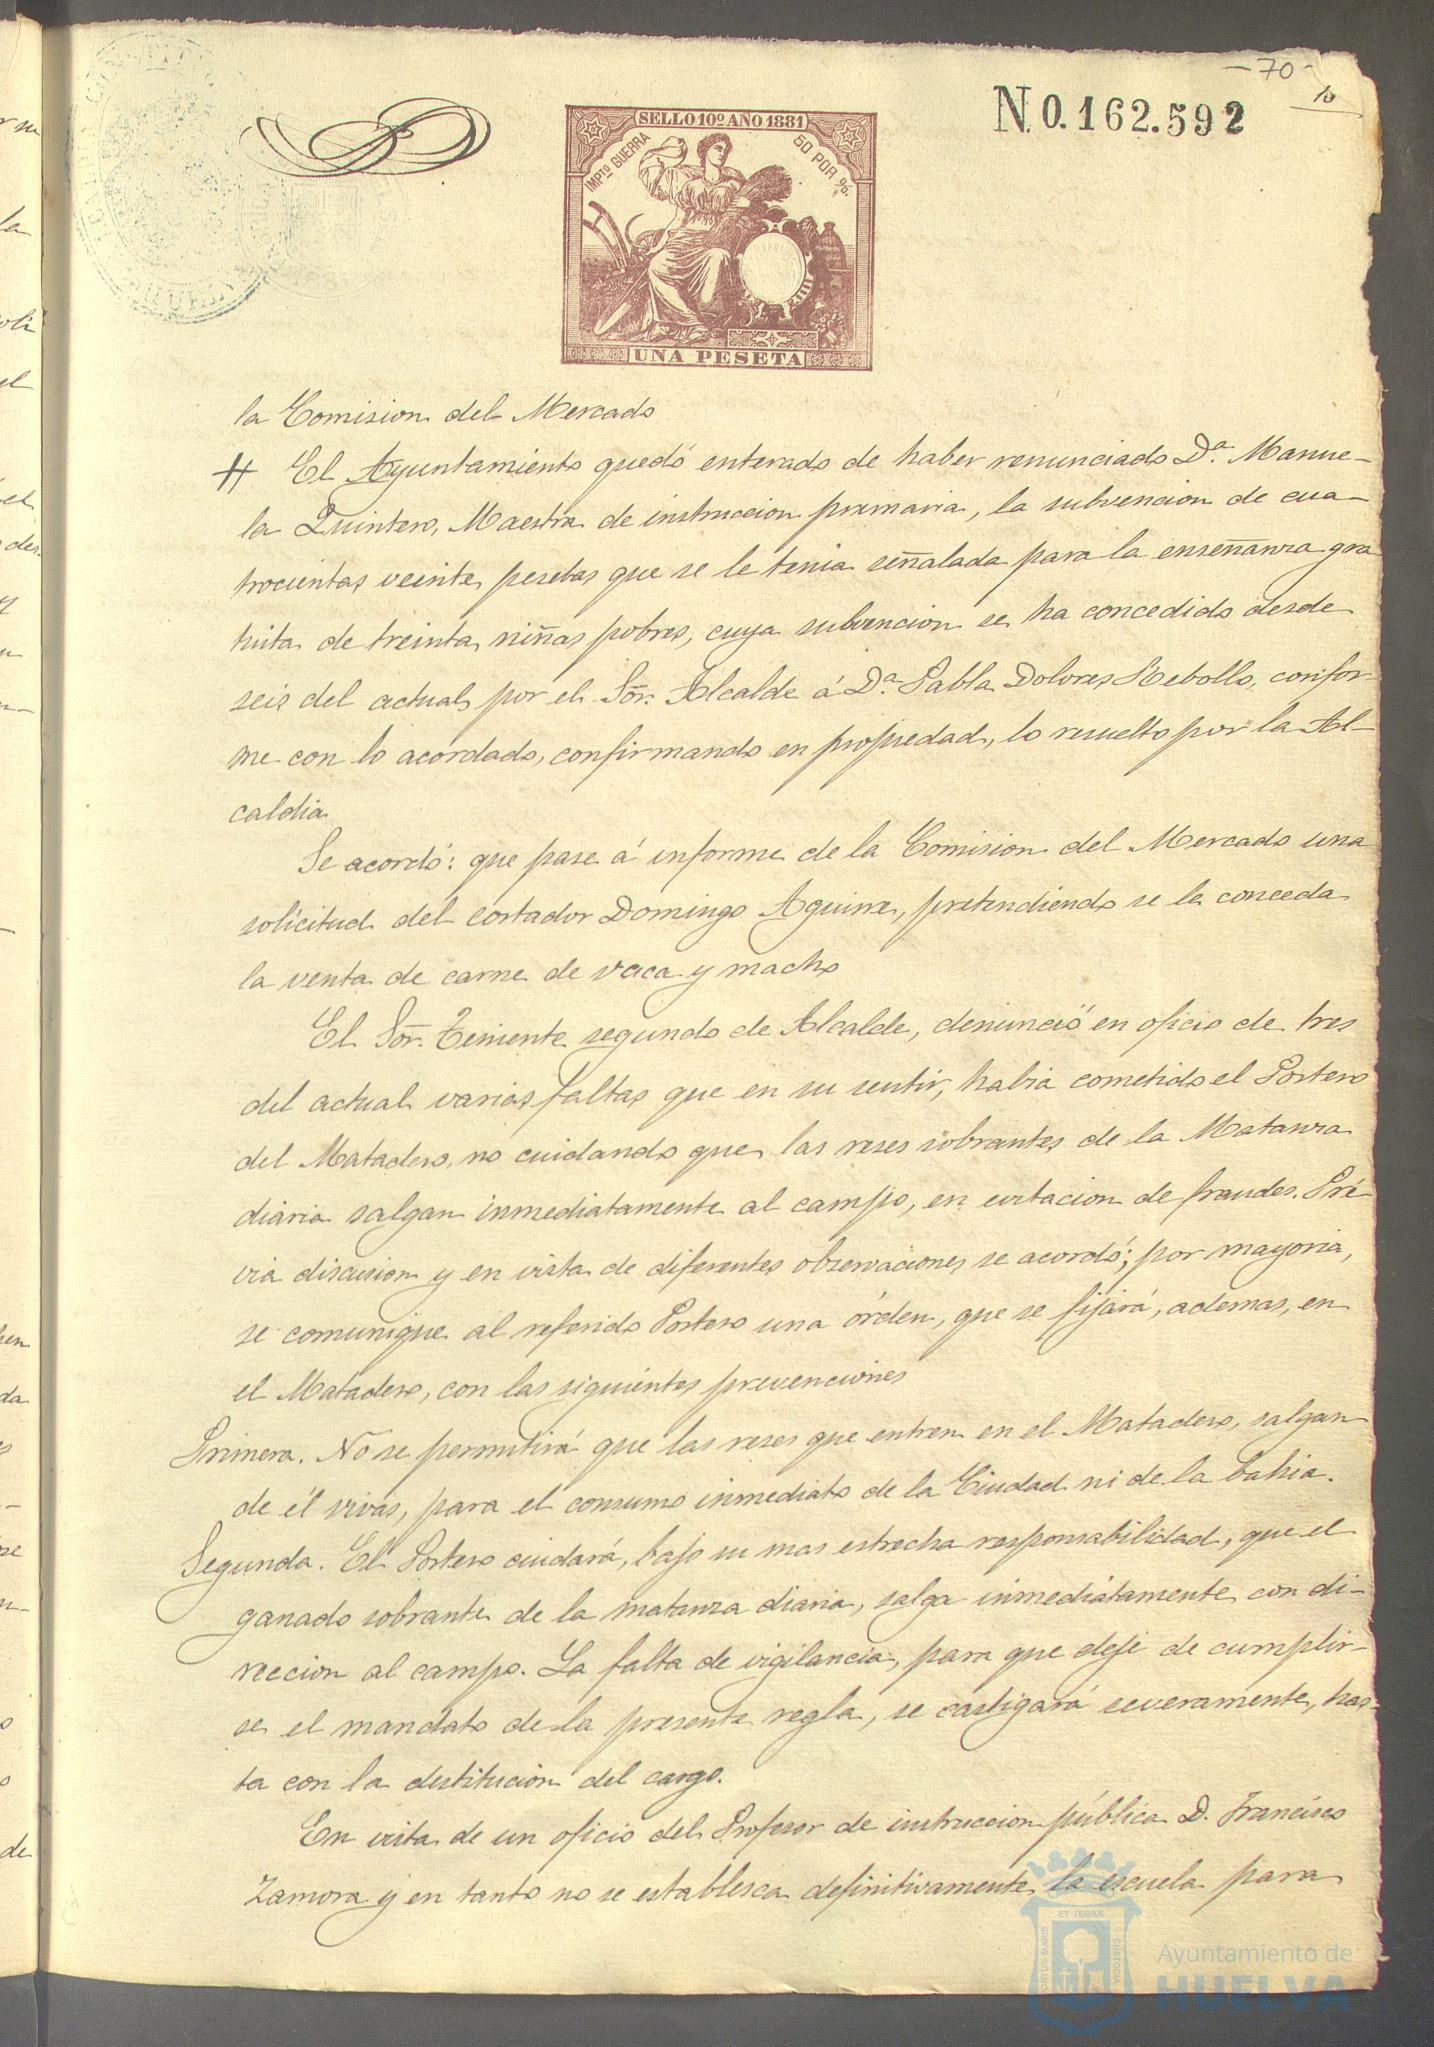 - 70 -
10
N.0.162.592
SELLO 10º AÑO 1881
IMPTO GUERRA
50 POR %
UNA PESETA
la Comision del Mercado
El Ayuntamiento quedó enterado de haber renunciado D.ª Manue-
la Quintero, Maestra de instruccion primaria, la subvencion de cua-
trocientas veinte pesetas que se le tenia señalada para la enseñanza gra
tuita de treinta niñas pobres, cuya subvencion se ha concedido desde
seis del actual por el Sor. Alcalde á D.ª Pabla Dolores Rebollo, confor-
me con lo acordado, confirmando en propiedad, lo resuelto por la Al-
caldia
Se acordó: que pase á informe de la Comision del Mercado una
solicitud del cortador Domingo Aguirre, pretendiendo se le conceda
la venta de carne de vaca y macho
El Sor. Teniente segundo de Alcalde, denunció en oficio de tres
del actual varias faltas que en su sentir, habia cometido el Portero
del Matadero, no cuidando que las reses sobrantes de la Matanza
diaria salgan inmediatamente al campo, en evitacion de fraudes. Pré
via discusion y en vista de diferentes observaciones se acordó; por mayoria,
se comunique al referido Portero una órden, que se fijará, ademas, en
el Matadero, con las siguientes prevenciones
Primera. No se permitirá que las reses que entren en el Matadero, salgan
de él vivas, para el consumo inmediato de la Ciudad ni de la bahia.
Segunda. El Portero cuidará, bajo su mas estrecha responsabilidad, que el
ganado sobrante de la matanza diaria, salga inmediatamente con di-
reccion al campo. La falta de vigilancia, para que deje de cumplir-
se el mandato de la presente regla, se castigará severamente, has-
ta con la destitucion del cargo.
En vista de un oficio del Profesor de instruccion pública D. Francisco
Zamora y en tanto no se establesca definitivamente la escuela para
ET TERRÆ
PORTUS MARIS
CUSTODIA
Ayuntamiento de
HUELVA